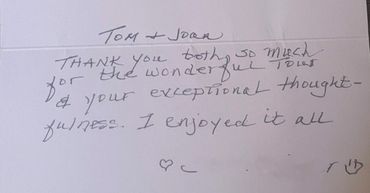 Tom + Joan
THANK you both so much
for the wonderful Tour
& your exceptional thought-
fulness. I enjoyed it all